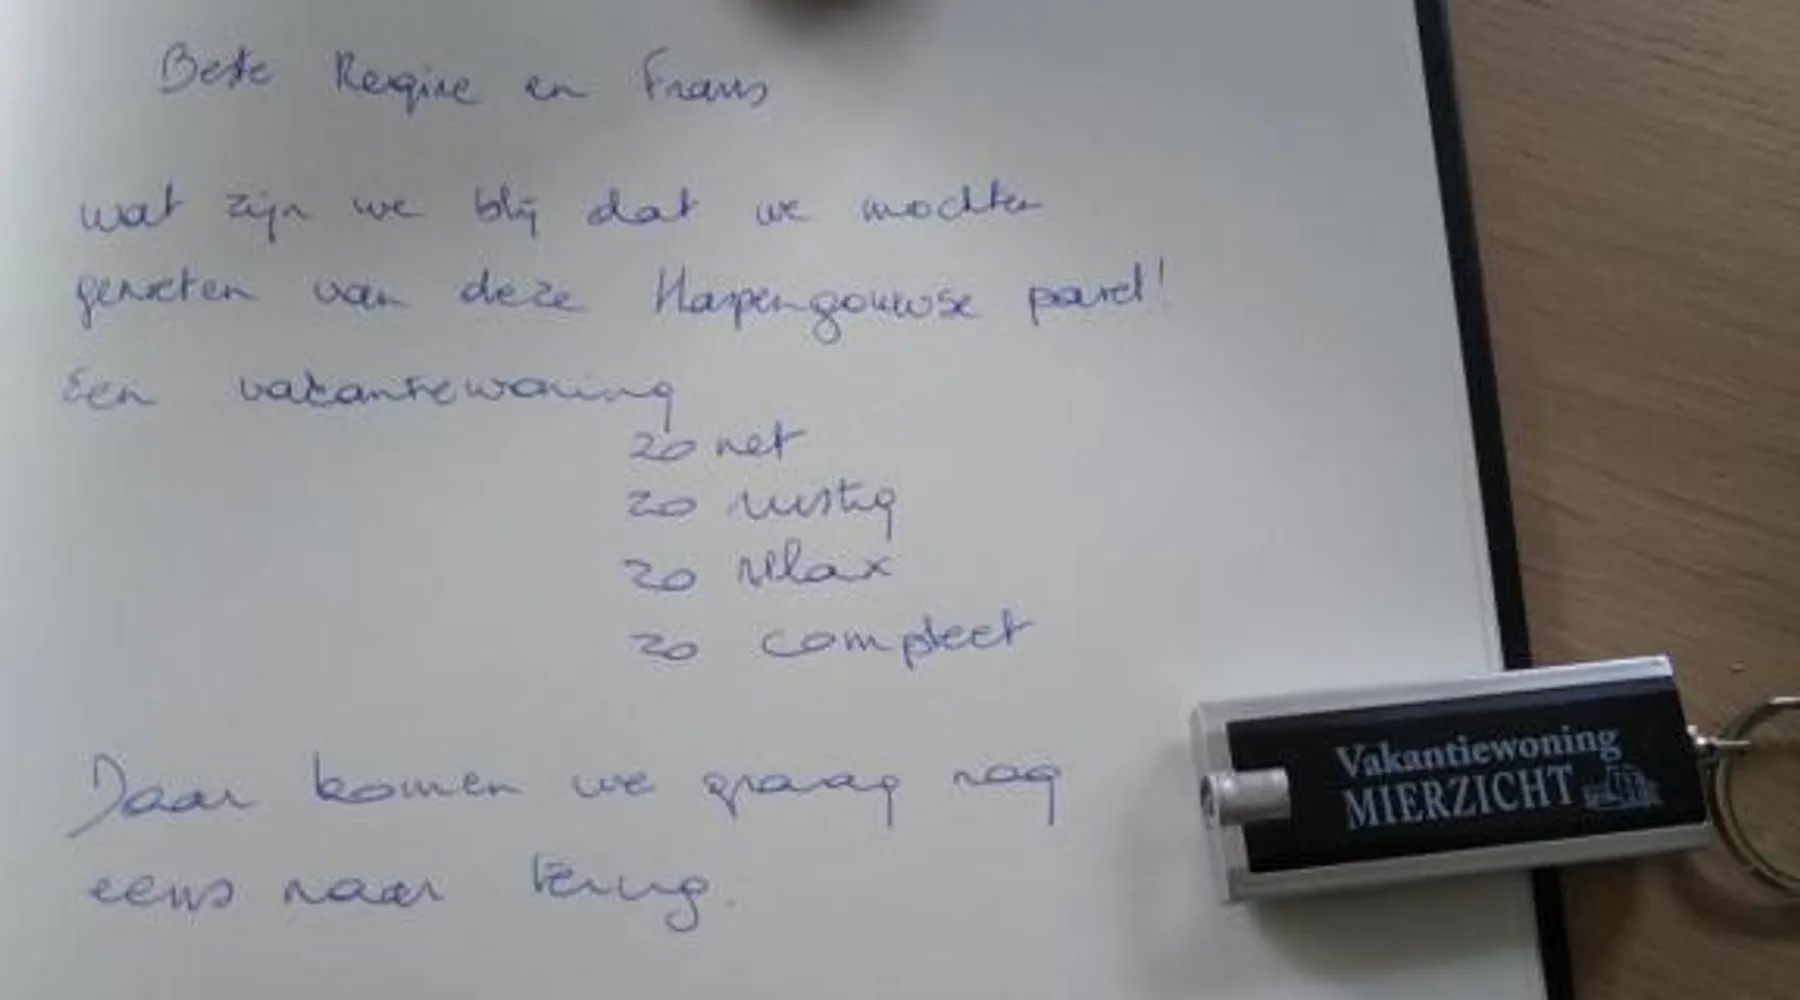 Beste Regine en Frans
wat zijn we blij dat we mochten
genieten van deze Haspengouwse parel!
Een vakantiewoning
zo net
zo rustig
zo relax
zo compleet
Daar komen we graag nog
eens naar terug.
Vakantiewoning
MIERZICHT